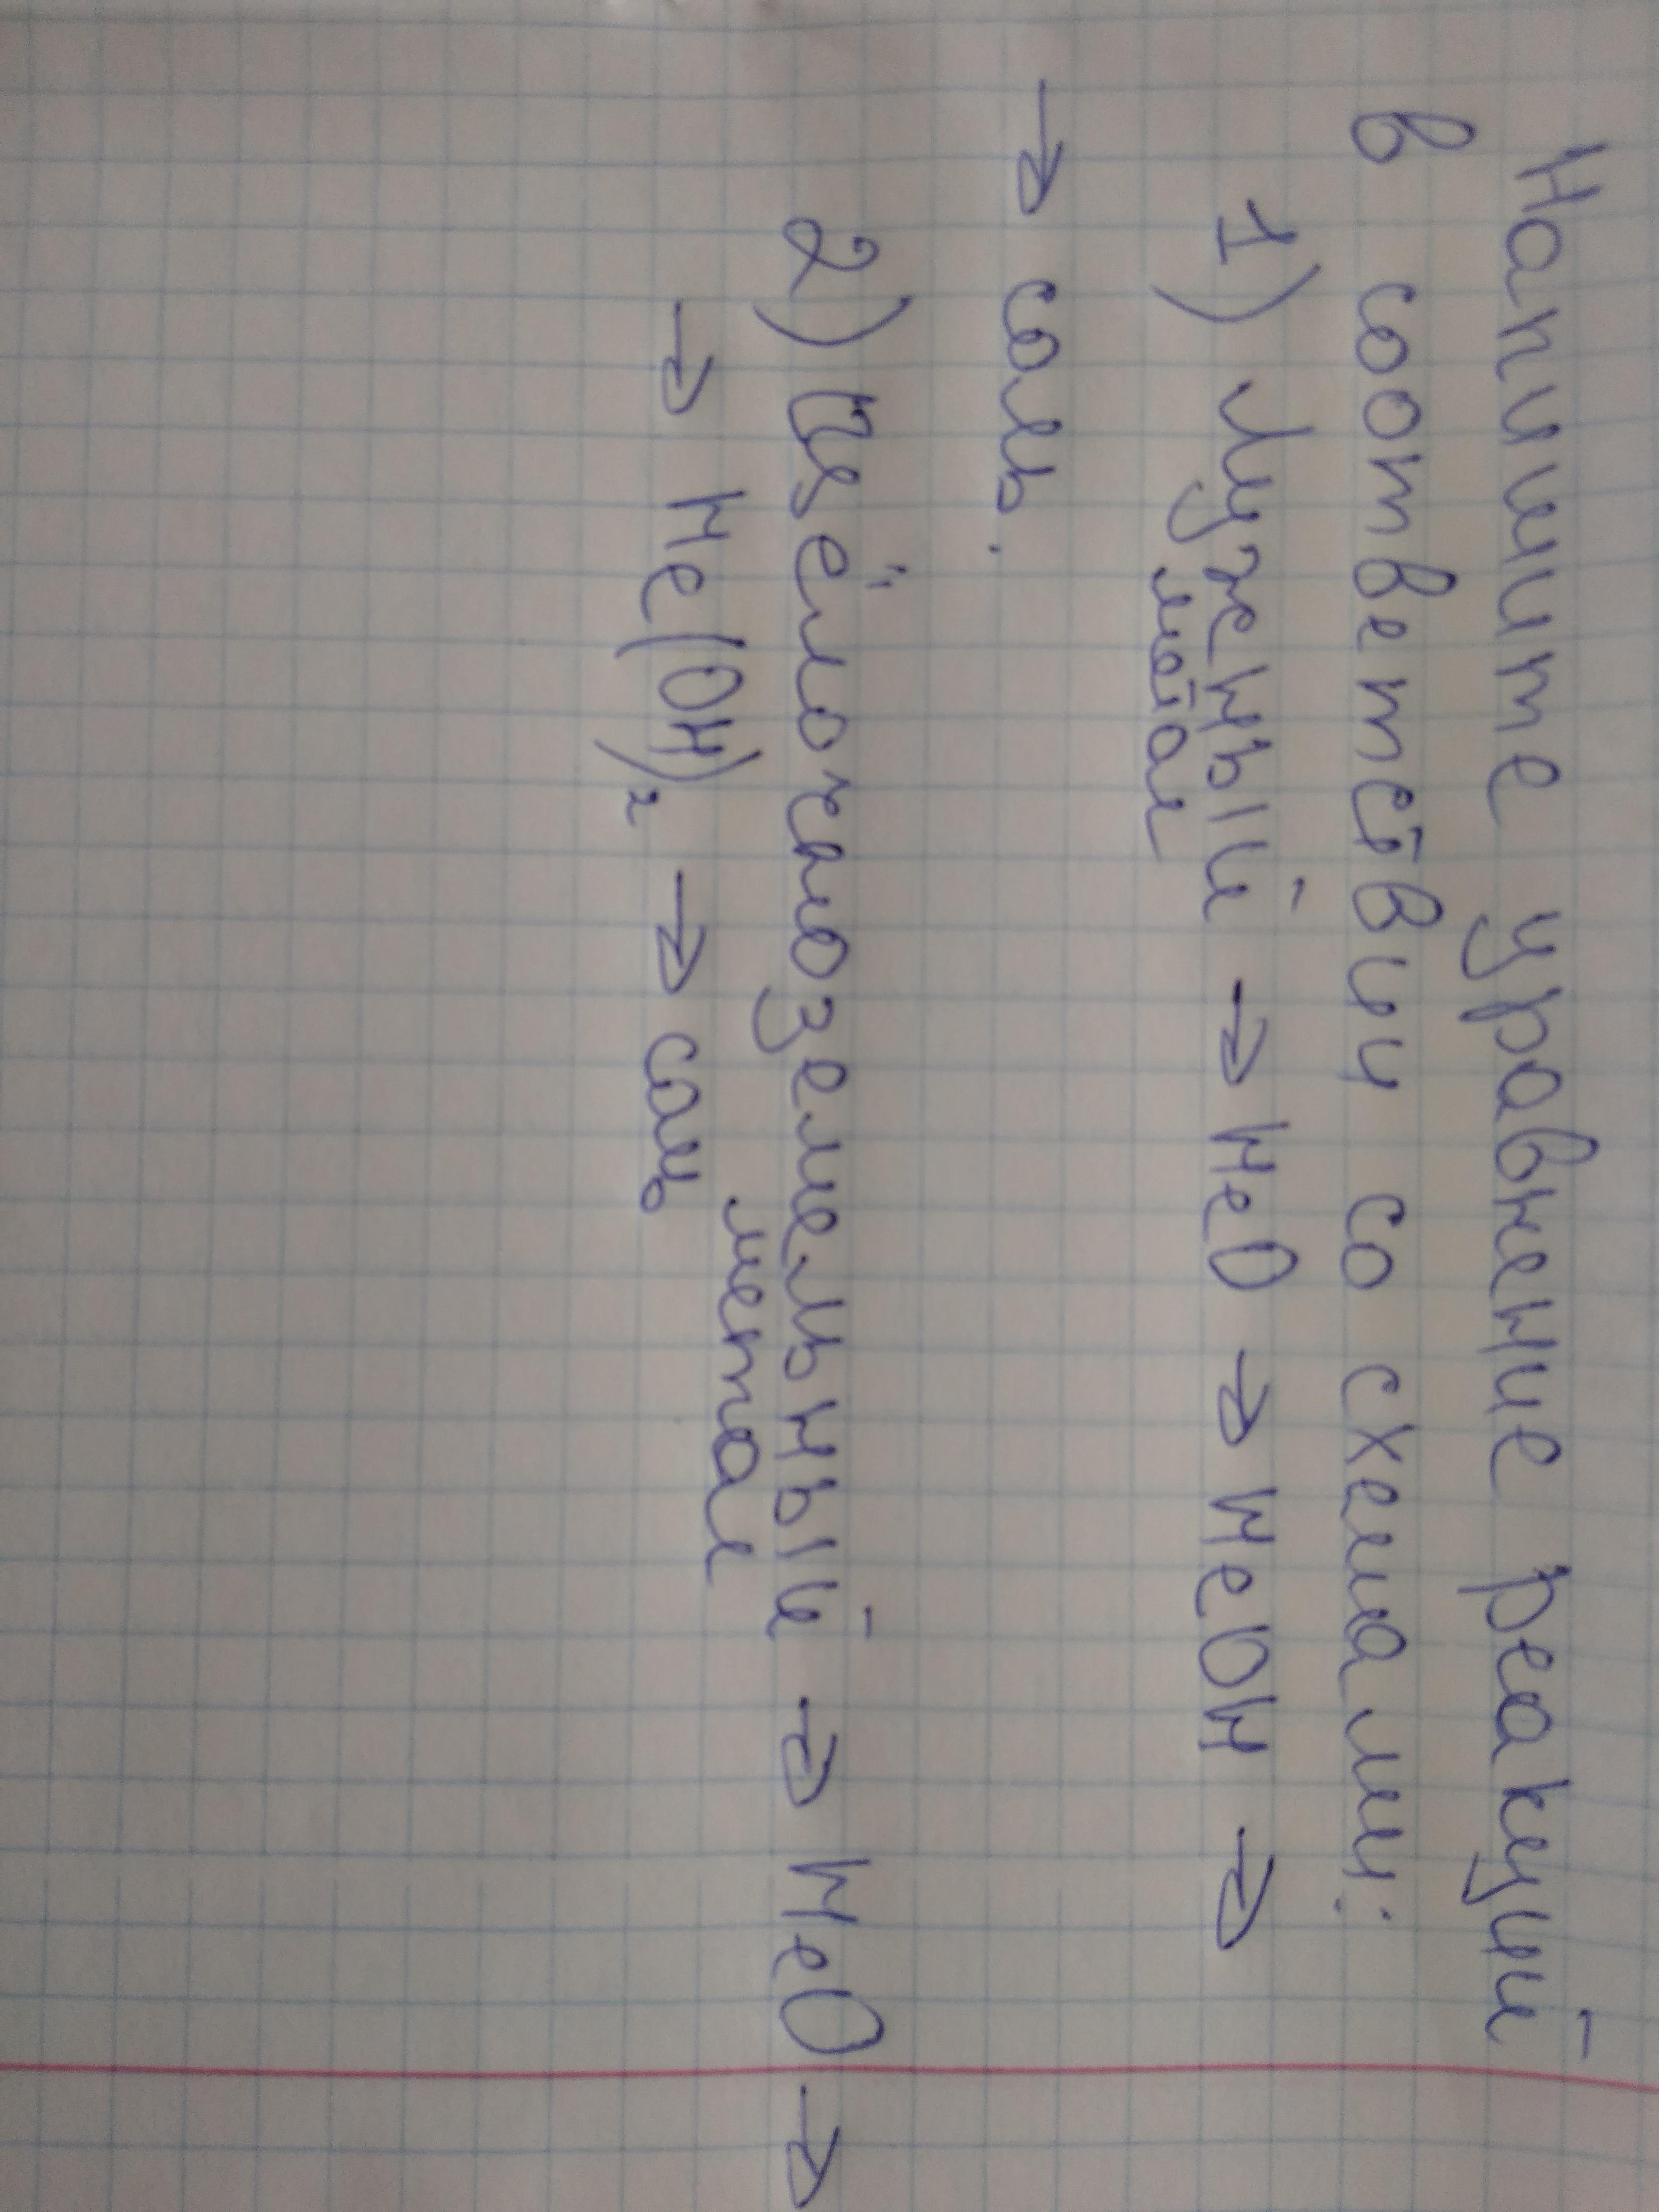 Напишите уравнение реакций
в соответствии со схемами:
1) Лужены​й → MeO → MeOH →
метал
→ соль.
2) Щёлочноземельный → MeO →
метал
→ Me(OH)₂ → соль